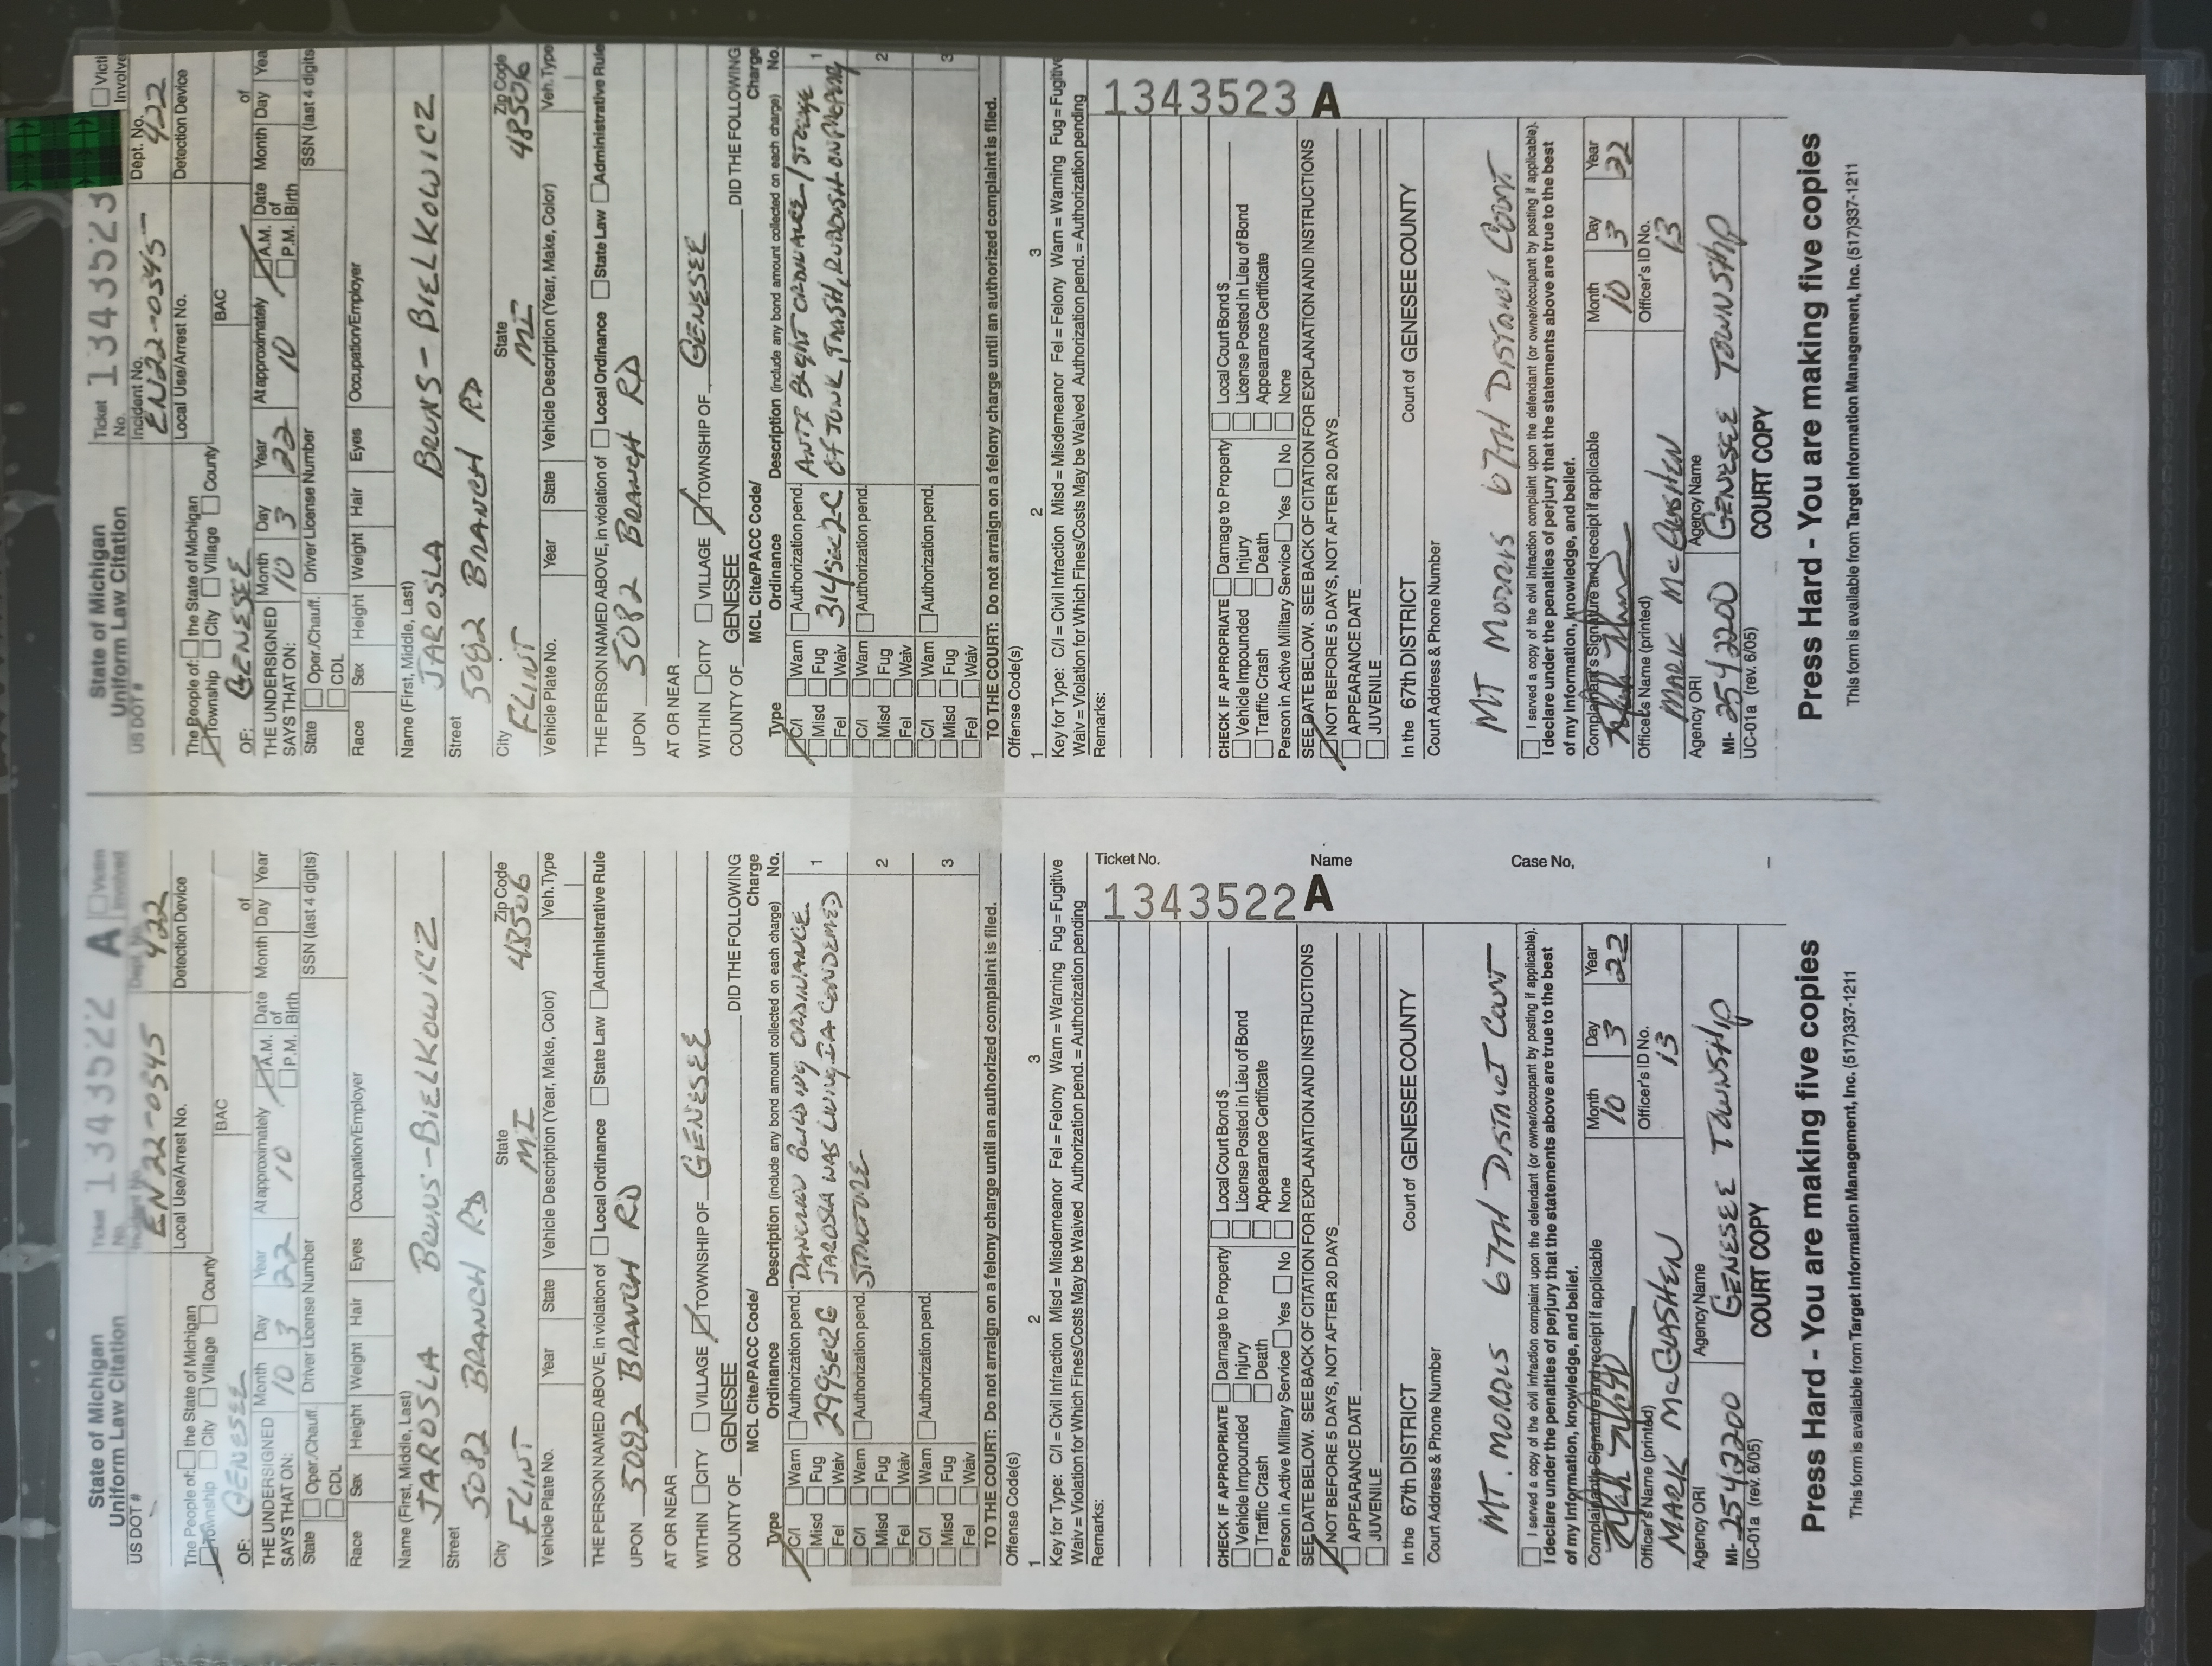 State of Michigan
Uniform Law Citation
US DOT #
Ticket No. 1343522 A
Victim Involved
Incident No. EN22-0345
Dept. No. 422
The People of: the State of Michigan
Township City Village County
OF: GENESEE
Local Use/Arrest No.
Detection Device
BAC
of
THE UNDERSIGNED SAYS THAT ON: Month 10 Day 3 Year 22 At approximately 10 A.M. P.M. Date of Birth Month Day Year
State Oper./Chauff. CDL Driver License Number SSN (last 4 digits)
Race Sex Height Weight Hair Eyes Occupation/Employer
Name (First, Middle, Last)
JAROSLA BRUNS-BIELKOWICZ
Street
5082 BRANCH RD
City State Zip Code
FLINT MI 48506
Vehicle Plate No. Year State Vehicle Description (Year, Make, Color) Veh. Type
THE PERSON NAMED ABOVE, in violation of Local Ordinance State Law Administrative Rule
UPON 5082 BRANCH RD
AT OR NEAR
WITHIN CITY VILLAGE TOWNSHIP OF GENESEE
COUNTY OF GENESEE DID THE FOLLOWING
MCL Cite/PACC Code/ Charge
Type Ordinance Description (include any bond amount collected on each charge) No.
C/I Warn Authorization pend. BUILDING ORDINANCE
Misd Fug 1
Fel Waiv 299SEC2G JAROSLA WAS LIVING CONDEMED
C/I Warn Authorization pend. STRUCTURE
Misd Fug 2
Fel Waiv
C/I Warn Authorization pend.
Misd Fug 3
Fel Waiv
TO THE COURT: Do not arraign on a felony charge until an authorized complaint is filed.
Offense Code(s)
1 2 3
Key for Type: C/I = Civil Infraction Misd = Misdemeanor Fel = Felony Warn = Warning Fug = Fugitive
Waiv = Violation for Which Fines/Costs May be Waived Authorization pend. = Authorization pending
Remarks:
Ticket No. 1343522 A
Name
Case No.
CHECK IF APPROPRIATE Damage to Property Local Court Bond $
Vehicle Impounded Injury License Posted in Lieu of Bond
Traffic Crash Death Appearance Certificate
Person in Active Military Service Yes No None
SEE DATE BELOW. SEE BACK OF CITATION FOR EXPLANATION AND INSTRUCTIONS
NOT BEFORE 5 DAYS, NOT AFTER 20 DAYS
APPEARANCE DATE
JUVENILE
In the 67th DISTRICT Court of GENESEE COUNTY
Court Address & Phone Number
MT. MORRIS 67TH DISTRICT COURT
I served a copy of the civil infraction complaint upon the defendant (or owner/occupant by posting if applicable).
I declare under the penalties of perjury that the statements above are true to the best
of my information, knowledge, and belief.
Complainant's Signature and receipt if applicable Month Day Year
10 3 22
Officer's Name (printed) Officer's ID No.
MARK McGLASHEN 13
Agency ORI Agency Name
MI- 2542200 GENESEE TOWNSHIP
UC-01a (rev. 6/05) COURT COPY
Press Hard - You are making five copies
This form is available from Target Information Management, Inc. (517)337-1211
State of Michigan
Uniform Law Citation
US DOT #
Ticket No. 1343523
Victi
Involve
Incident No. EN22-0345
Dept. No. 422
The People of: the State of Michigan
Township City Village County
OF: GENESEE
Local Use/Arrest No.
Detection Device
BAC
of
THE UNDERSIGNED SAYS THAT ON: Month 10 Day 3 Year 22 At approximately 10 A.M. P.M. Date of Birth Month Day Yea
State Oper./Chauff. CDL Driver License Number SSN (last 4 digits
Race Sex Height Weight Hair Eyes Occupation/Employer
Name (First, Middle, Last)
JAROSLA BRUNS-BIELKOWICZ
Street
5082 BRANCH RD
City State Zip Code
FLINT MI 48506
Vehicle Plate No. Year State Vehicle Description (Year, Make, Color) Veh. Type
THE PERSON NAMED ABOVE, in violation of Local Ordinance State Law Administrative Rule
UPON 5082 BRANCH RD
AT OR NEAR
WITHIN CITY VILLAGE TOWNSHIP OF GENESEE
COUNTY OF GENESEE DID THE FOLLOWING
MCL Cite/PACC Code/ Charge
Type Ordinance Description (include any bond amount collected on each charge) No.
C/I Warn Authorization pend. ANTI ORDINANCE / STORAGE
Misd Fug 1
Fel Waiv 314/SEC2-C OF JUNK, TRASH, RUBBISH ON PROPERTY
C/I Warn Authorization pend.
Misd Fug 2
Fel Waiv
C/I Warn Authorization pend.
Misd Fug 3
Fel Waiv
TO THE COURT: Do not arraign on a felony charge until an authorized complaint is filed.
Offense Code(s)
1 2 3
Key for Type: C/I = Civil Infraction Misd = Misdemeanor Fel = Felony Warn = Warning Fug = Fugitive
Waiv = Violation for Which Fines/Costs May be Waived Authorization pend. = Authorization pending
Remarks:
1343523 A
CHECK IF APPROPRIATE Damage to Property Local Court Bond $
Vehicle Impounded Injury License Posted in Lieu of Bond
Traffic Crash Death Appearance Certificate
Person in Active Military Service Yes No None
SEE DATE BELOW. SEE BACK OF CITATION FOR EXPLANATION AND INSTRUCTIONS
NOT BEFORE 5 DAYS, NOT AFTER 20 DAYS
APPEARANCE DATE
JUVENILE
In the 67th DISTRICT Court of GENESEE COUNTY
Court Address & Phone Number
MT MORRIS 67TH DISTRICT COURT
I served a copy of the civil infraction complaint upon the defendant (or owner/occupant by posting if applicable).
I declare under the penalties of perjury that the statements above are true to the best
of my information, knowledge, and belief.
Complainant's Signature and receipt if applicable Month Day Year
10 3 22
Officer's Name (printed) Officer's ID No.
MARK McGLASHEN 13
Agency ORI Agency Name
MI- 2542200 GENESEE TOWNSHIP
UC-01a (rev. 6/05) COURT COPY
Press Hard - You are making five copies
This form is available from Target Information Management, Inc. (517)337-1211